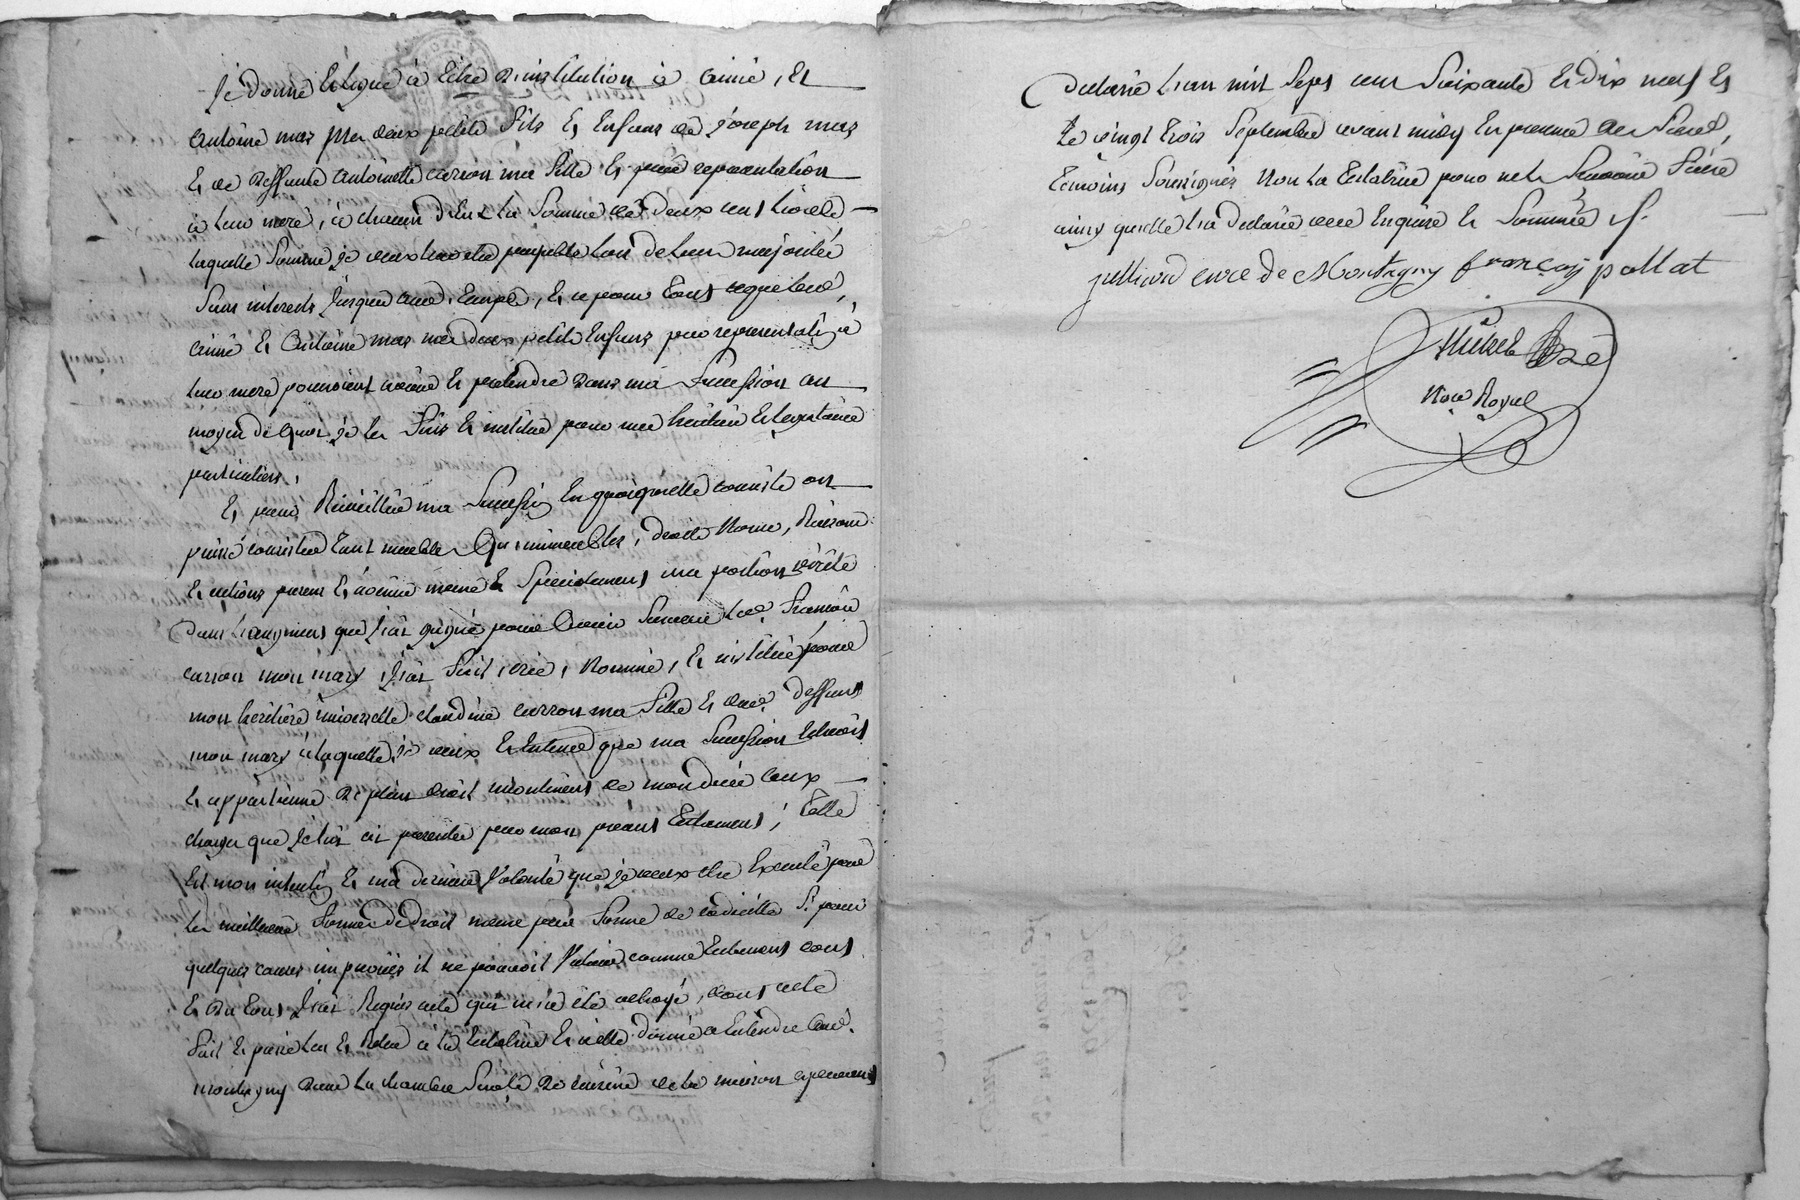 Je donne Et legue à titre D'institution à aimé, Et
Antoine mas mes deux petits fils Et Enfans de joseph mas
Et de deffunte antoinette carron ma fille Et par representation
à leur mere, à chacun d'Eux la Somme de deux cens livres
laquelle Somme je veux leur etre payable lors de leur majorité
Sans interets jusques aud. temps, Et ce pour tout ce que led.
aimé Et Antoine mas mes deux petits Enfans par representation à
leur mere pourroient avoir Et pretendre dans ma Succession au
moyen de quoi je les fais Et institue pour mes heritiers Et legataires
particuliers,
Et pour Recueillir ma Succession En quoiqu'elle consiste ou
puisse consister tant meubles Qu'immeubles, droits Noms, Raisons
Et actions presens Et avenir meme Et Specialement ma portion virile
dans l'augment que j'ai gagné pour avoir Survecu led.
carron mon mary j'ai fait, créé, Nommé, Et institué pour
mon heritiere universelle claudine carron ma fille Et dud. deffunt
mon mary à laquelle je veux Et Entend que ma Succession
Et appartienne De plein droit incontinent de mon decès aux
charges que je lui ai par mon present testament; telle
Est mon intention Et ma derniere Volonté que je veux etre Executé par
les meilleures formes de droit meme par forme de codicille Si pour
quelques causes imprevües il ne pouvoit Valoir comme testament
Et du tout j'ai Requis acte qui m'a été octroyé, dont acte
fait Et passé leu Et Relu à la testatrice Et icelle donné à Entendre aud.
montagny dans la chambre Servant De cuisine de la maison
declaré L'an mil Sept cent Soixante Et dix neuf Et
Le vingt trois Septembre avant midy En presence des Sieurs
temoins Soussignés Non La testatrice pour ne le Sçavoir faire
ainsy qu'elle l'a declaré de ce Enquise Et Sommée
julliard curé de Montagny françois pallat
Nore Royal